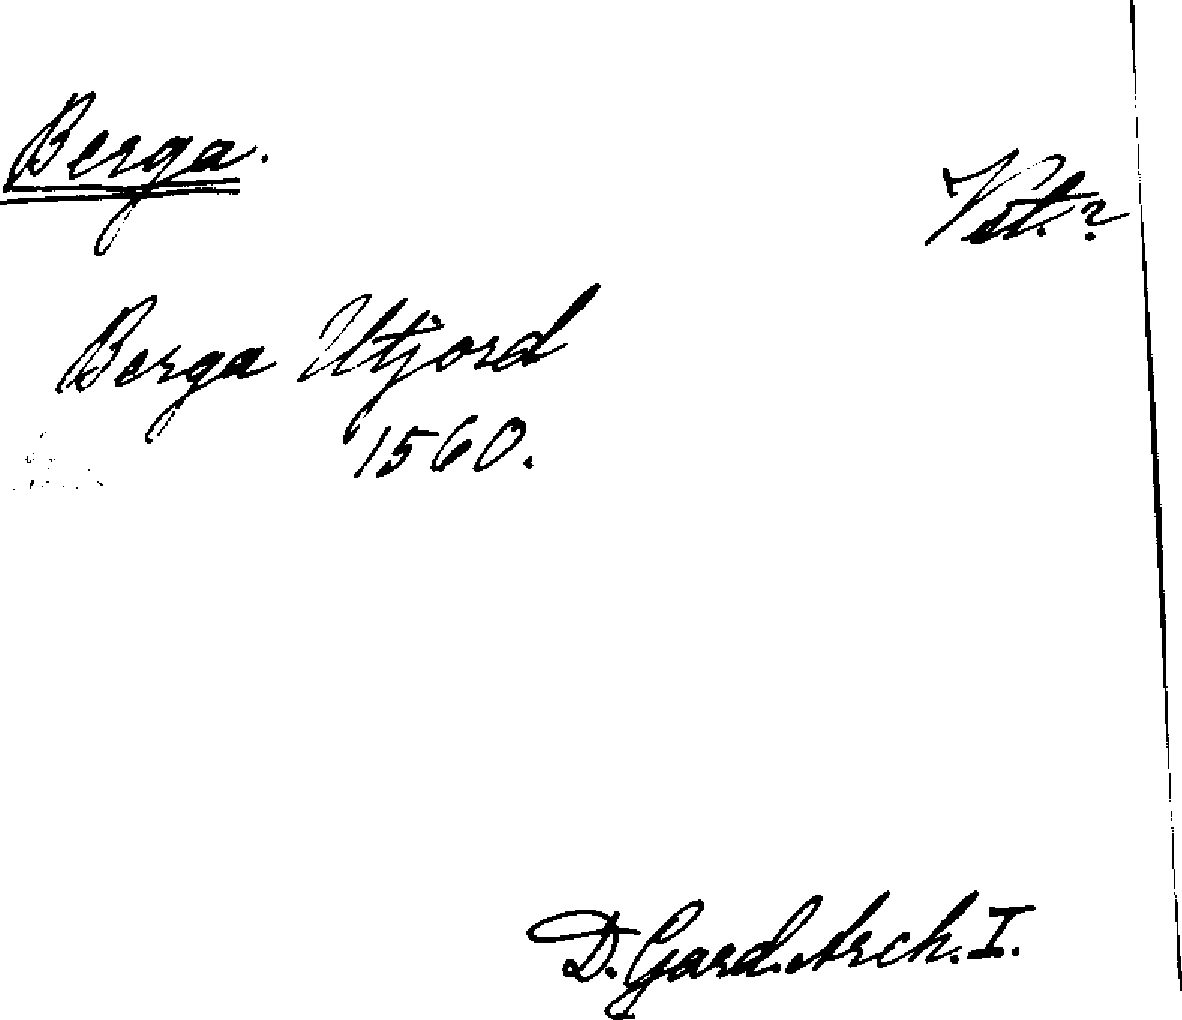 Berga.
Vist.?
Berga Utjord
1560.
D. Gard. Arch. I.